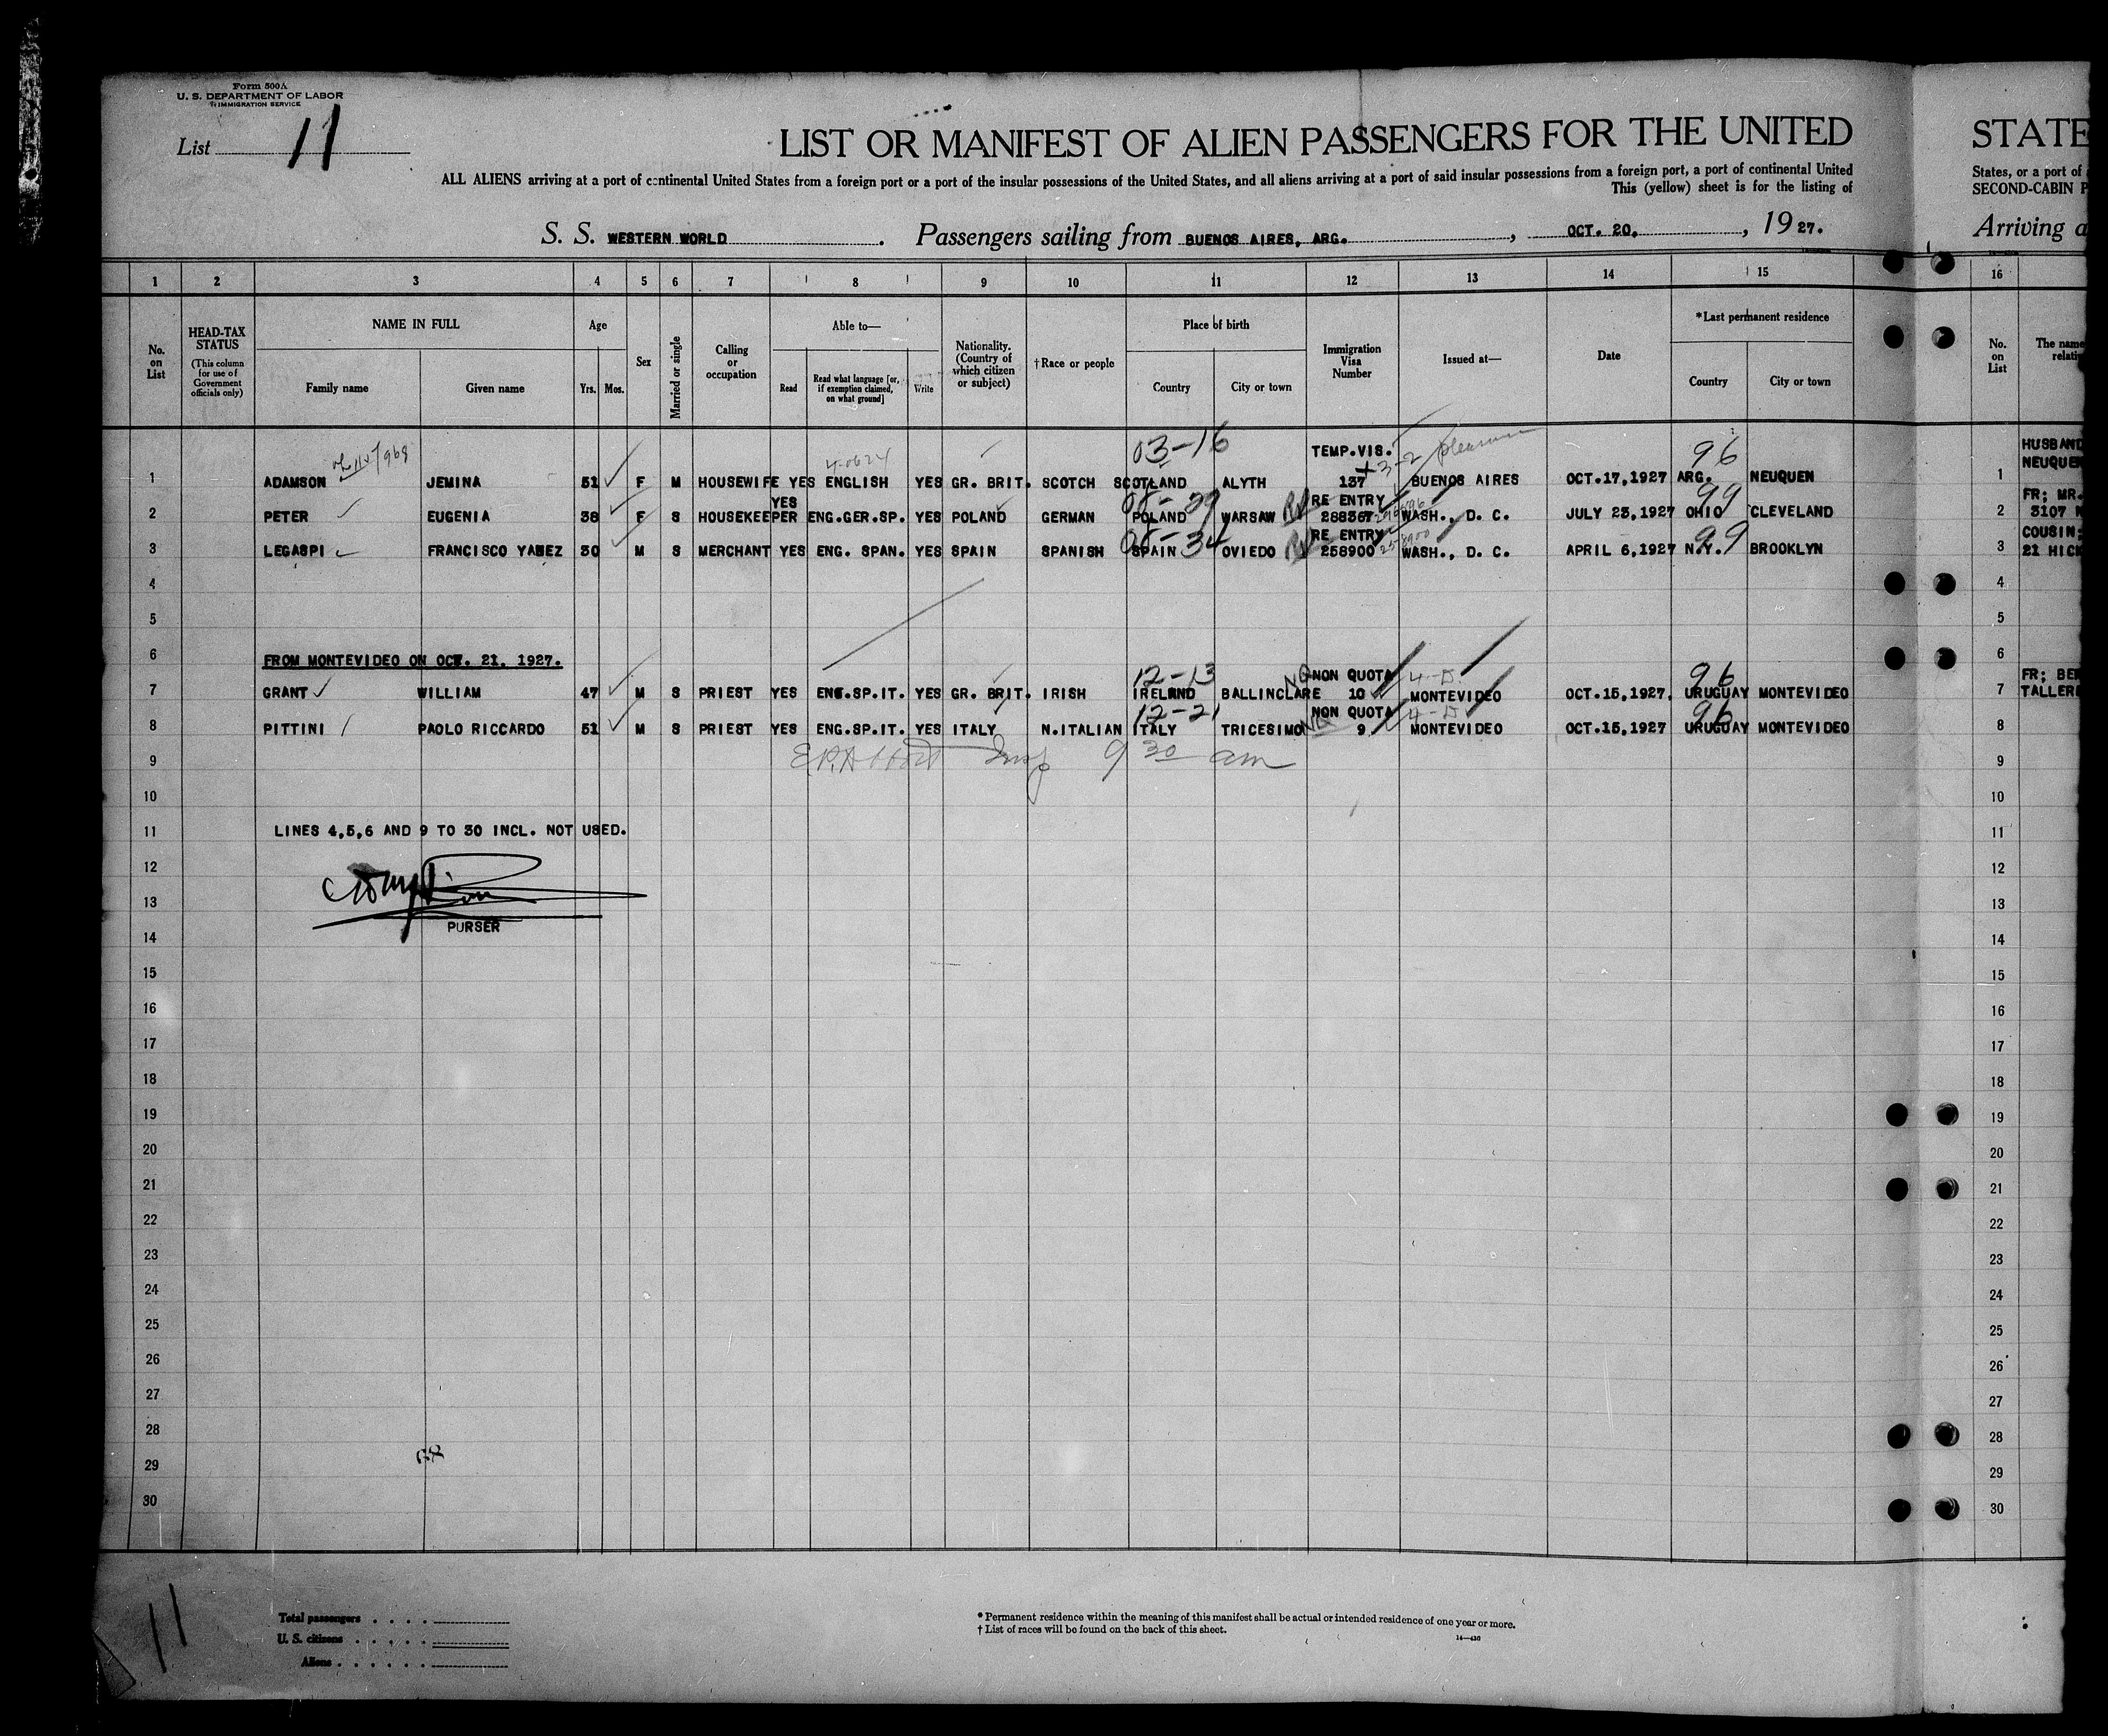 Form 500A
U. S. DEPARTMENT OF LABOR
IMMIGRATION SERVICE
List 11
LIST OR MANIFEST OF ALIEN PASSENGERS FOR THE UNITED STATE
ALL ALIENS arriving at a port of continental United States from a foreign port or a port of the insular possessions of the United States, and all aliens arriving at a port of said insular possessions from a foreign port, a port of continental United States, or a port of
This (yellow) sheet is for the listing of SECOND-CABIN P
S. S. WESTERN WORLD. Passengers sailing from BUENOS AIRES, ARG., OCT. 20, 1927. Arriving a
1 2 3 4 5 6 7 8 9 10 11 12 13 14 15 16
No. on List
HEAD-TAX STATUS
(This column for use of Government officials only)
NAME IN FULL
Family name Given name
Age
Yrs. Mos.
Sex
Married or single
Calling or occupation
Able to—
Read
Read what language [or, if exemption claimed, on what ground]
Write
Nationality. (Country of which citizen or subject)
†Race or people
Place of birth
Country City or town
Immigration Visa Number
Issued at—
Date
*Last permanent residence
Country City or town
No. on List
The name
relati
03-16 TEMP.VIS. 3-2 pleasure 96 HUSBAND
NEUQUEN
1 ADAMSON JEMINA 51 F M HOUSEWIFE YES ENGLISH YES GR. BRIT. SCOTCH SCOTLAND ALYTH 137 BUENOS AIRES OCT.17,1927 ARG. NEUQUEN 1
YES RE ENTRY 99 FR; MR.
2 PETER EUGENIA 38 F S HOUSEKEEPER ENG.GER.SP. YES POLAND GERMAN POLAND WARSAW 288367 WASH., D. C. JULY 23,1927 OHIO CLEVELAND 2 3107
RE ENTRY 99 COUSIN;
3 LEGASPI FRANCISCO YANEZ 30 M S MERCHANT YES ENG. SPAN. YES SPAIN SPANISH SPAIN OVIEDO 258900 WASH., D. C. APRIL 6,1927 N.Y. BROOKLYN 3 21 HICK
4 4
5 5
6 FROM MONTEVIDEO ON OCT. 21. 1927. 6
12-13 NQ NON QUOTA 4-D 96 FR; BE
7 GRANT WILLIAM 47 M S PRIEST YES ENG.SP.IT. YES GR. BRIT. IRISH IRELAND BALLINCLARE 10 MONTEVIDEO OCT.15,1927. URUGUAY MONTEVIDEO 7 TALLER
12-21 NQ NON QUOTA 4-D 96
8 PITTINI PAOLO RICCARDO 51 M S PRIEST YES ENG.SP.IT. YES ITALY N.ITALIAN ITALY TRICESIMO 9 MONTEVIDEO OCT.15,1927 URUGUAY MONTEVIDEO 8
9 Insp 9 30 am 9
10 10
11 LINES 4,5,6 AND 9 TO 30 INCL. NOT USED. 11
12 12
13 13
PURSER
14 14
15 15
16 16
17 17
18 18
19 19
20 20
21 21
22 22
23 23
24 24
25 25
26 26
27 27
28 28
29 29
30 30
11
Total passengers
U. S. citizens
Aliens
* Permanent residence within the meaning of this manifest shall be actual or intended residence of one year or more.
† List of races will be found on the back of this sheet.